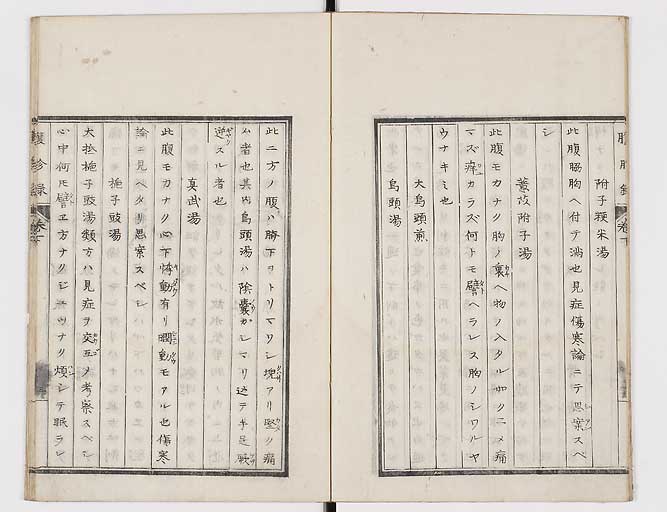 附子粳米湯
此腹脇胸ヘ付テ満也見症傷寒論ニテ思案スベ
シ
薏苡附子湯
此腹モカナク胸ノ裏ヘ物ノ入タル如クニメ痛
マズ痒カラズ何トモ譬ヘラレス胸ノシワルヤ
ウナキミ也
大烏頭煎
烏頭湯
此二方ノ腹ハ臍下ヲトリマワシ塊アリ堅ク痛
ム者也其内烏頭湯ハ陰嚢カシマリ込テ手足厥
逆スル者也
真武湯
此腹モカナク心下悸動有リ瞤動モアル也傷寒
論ニ見ヘタリ思案スベシ
梔子豉湯
大抵梔子豉湯類方ハ見症ヲ交互ノ考案スベシ
心中何トモ譬エ方ナクジュウナク煩シテ眠ラレ
腹診録
巻下